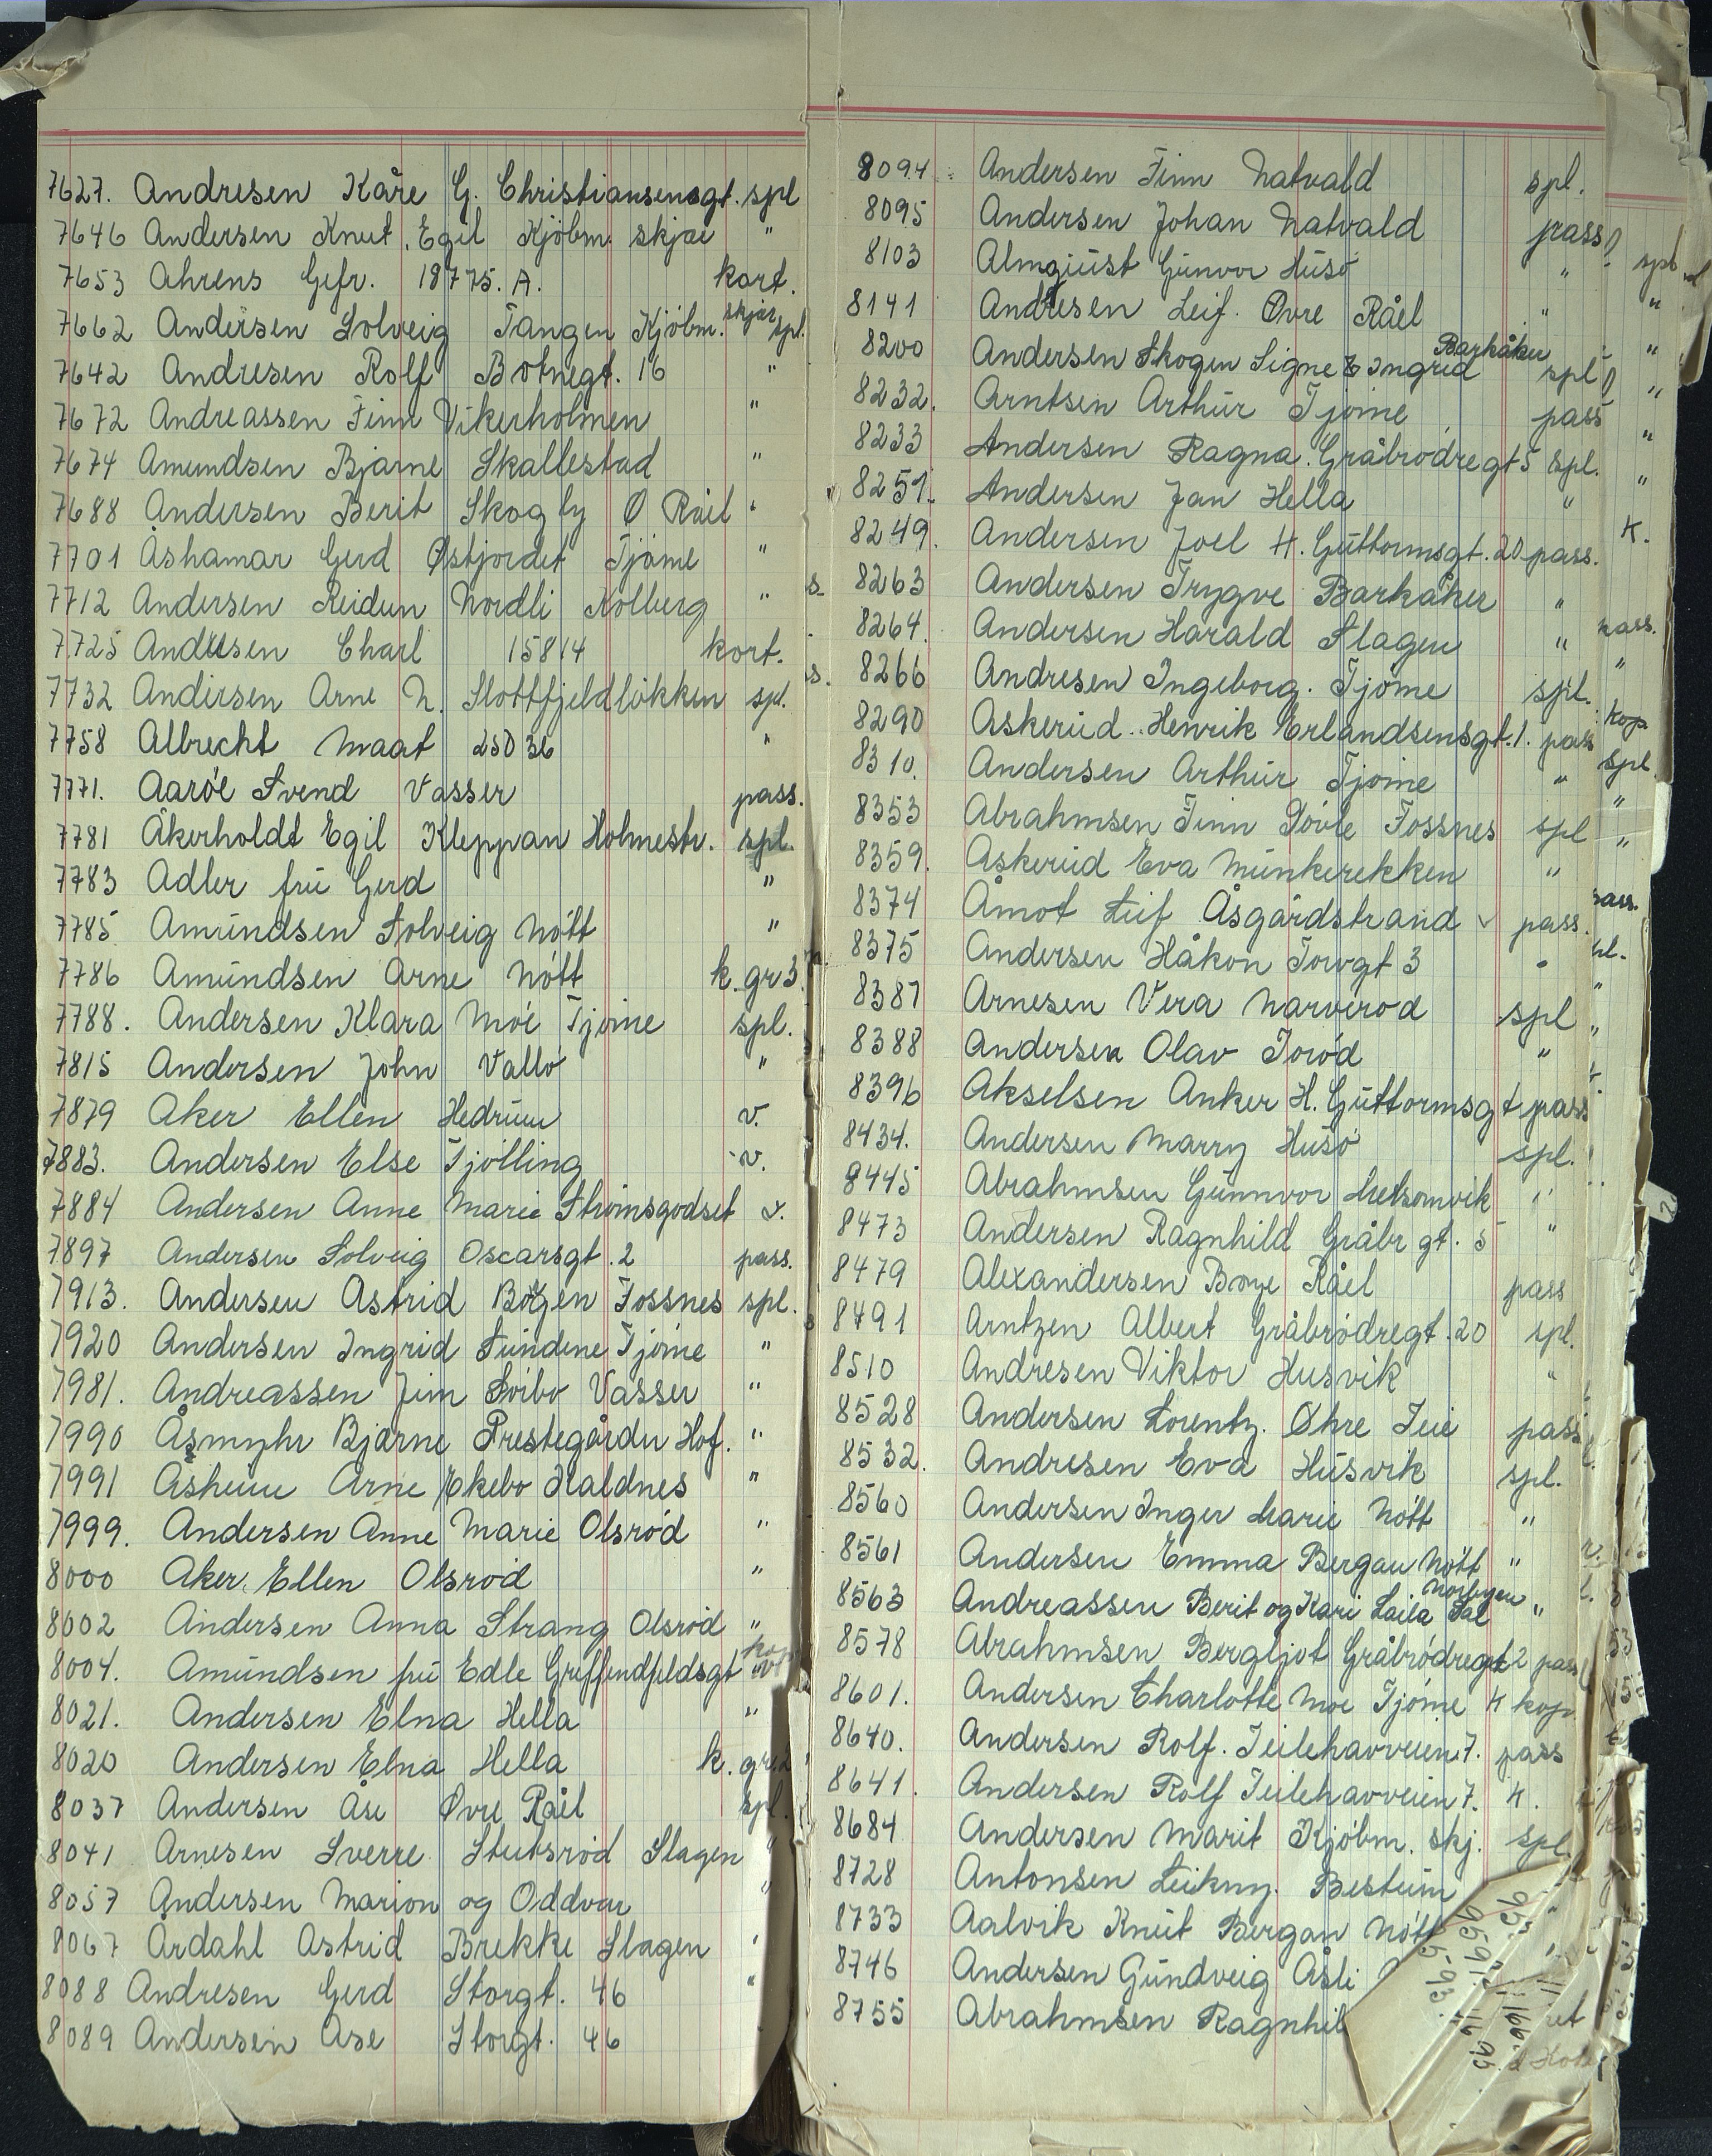 7627. Andresen Kåre G. Christiansensgt. spl
7646 Andersen Knut Egil Kjöbm. skjær "
7653 Ahrens Gefr. 18775. A. kort.
7662 Andersen Solveig Tangen Kjöbm. skjær spl.
7642 Andresen Rolf Botnegt. 16 "
7672 Andreassen Finn Vikerholmen "
7674 Amundsen Bjarne Skallestad "
7688 Andersen Berit Skogly Ø Råel "
7701 Åshamar Gerd Østjordet Tjöme "
7712 Andersen Reidun Nordli Kolberg "
7725 Andresen Charl 15814 kort.
7732 Andersen Arne N. Slottfjeldlökken spl.
7758 Albrecht Maat 25036 "
7771. Aaröe Svend Vasser pass.
7781 Åkerholdt Egil Kleppan Holmestr. spl.
7783 Adler frú Gerd "
7785 Amundsen Solveig Nött "
7786 Amundsen Arne Nött k. gr 3.
7788. Andersen Klara Moe Tjöme spl.
7815 Andersen John Vallö "
7879 Aker Ellen Hedrum v.
7883. Andersen Else Tjölling v.
7884 Andersen Anne Marie Strömsgodset v.
7897 Andersen Solveig Oscarsgt. 2 pass.
7913. Andersen Astrid Bögen Fossnes spl.
7920 Andersen Ingrid Sundene Tjöme "
7981. Andreassen Jim Solbo Vasser "
7990 Åsmyhr Bjarne Prestegården Hof. "
7991 Åsheim Arne Ekebo Kaldnes "
7999. Andersen Anne Marie Olsröd "
8000 Aker Ellen Olsröd "
8002 Andersen Anna Strang Olsröd "
8004. Amundsen frú Edle Griffendfeldsgt
8021. Andersen Elna Hella "
8020 Andersen Elna Hella k. gr. 2
8037 Andersen Åse Øvre Råel spl.
8041 Arnesen Sverre Stutsröd Slagen "
8057 Andersen Marion og Oddvar "
8067 Årdahl Astrid Brekke Slagen "
8088 Andresen Gerd Storgt. 46 "
8089 Andersen Åse Storgt. 46
8094 Andersen Finn Natvald spl.
8095 Andersen Johan Natvald pass
8103 Almqúist Gúnvor Húsö "
8141 Andresen Leif. Øvre Råel "
8200 Andersen Skogen Signe & Ingrid Barkåker spl
8232. Arntsen Arthúr Tjöme pass
8233 Andersen Ragna. Gråbrödregt 5 spl.
8251. Andersen Jan Hella "
8249. Andersen Joel H. Gúttormsgt. 20 pass.
8263 Andersen Trygve Barkåker "
8264. Andersen Harald Slagen "
8266 Andresen Ingeborg. Tjöme spl.
8290 Askerúd.. Henrik Erlandsensgt. 1. pass
8310. Andersen Arthúr Tjöme "
8353 Abrahmsen Finn Sövle Fossnes spl
8359. Askerúd Eva Múnkerekken "
8374 Åmot Leif Åsgårdstrand pass.
8375 Andersen Håkon Torvgt 3 "
8387 Arnesen Vera Narveröd spl
8388 Andersen Olav Toröd "
8396 Akselsen Anker H. Gúttormsgt pass
8434. Andersen Marry Húsö spl.
8445 Abrahmsen Gúnnvor Melsomvik "
8473 Andersen Ragnhild Gråbr gt. 5 "
8479 Alexandersen Borge Råel pass
8491 Arntzen Albert Gråbrödregt. 20 spl.
8510 Andresen Viktor Husvik "
8528 Andersen Lorentz. Øhre Teie pass
8532. Andresen Eva Húsvik spl.
8560 Andersen Inger Marie Nött "
8561 Andersen Emma Bergan Nött "
8563 Andreassen Berit og Kari Laila Dal "
8578 Abrahmsen Bergljot Gråbrödregt 2 pass
8601. Andersen Charlotte Moe Tjöme K kop
8640. Andersen Rolf. Teilehavveien 7. pass
8641. Andersen Rolf Teilehavveien 7. K.
8684 Andersen Marit Kjöbm. skj. spl
8728 Antonsen Leikny. Besteim
8733 Aalvik Knút Bergan Nött
8746 Andersen Gúndveig Åsli
8755 Abrahmsen